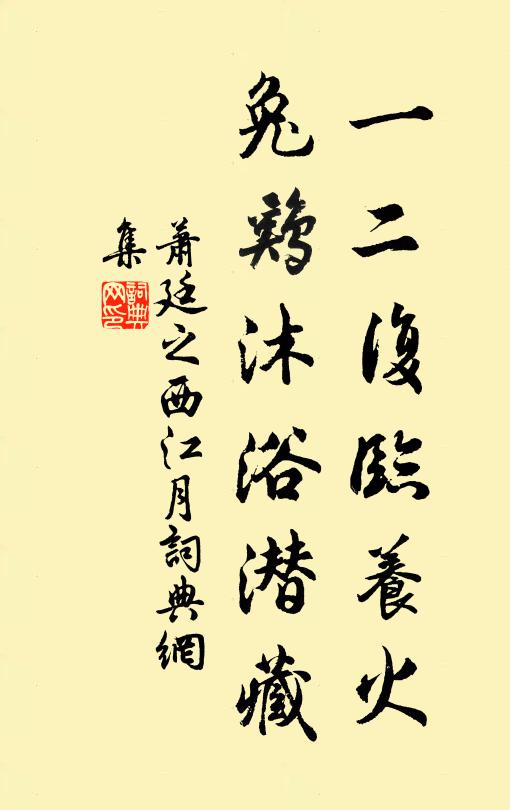 一二復臨養火
兔鷄沐浴潛藏
蕭廷之西江月詞典網
集
詞典
网印